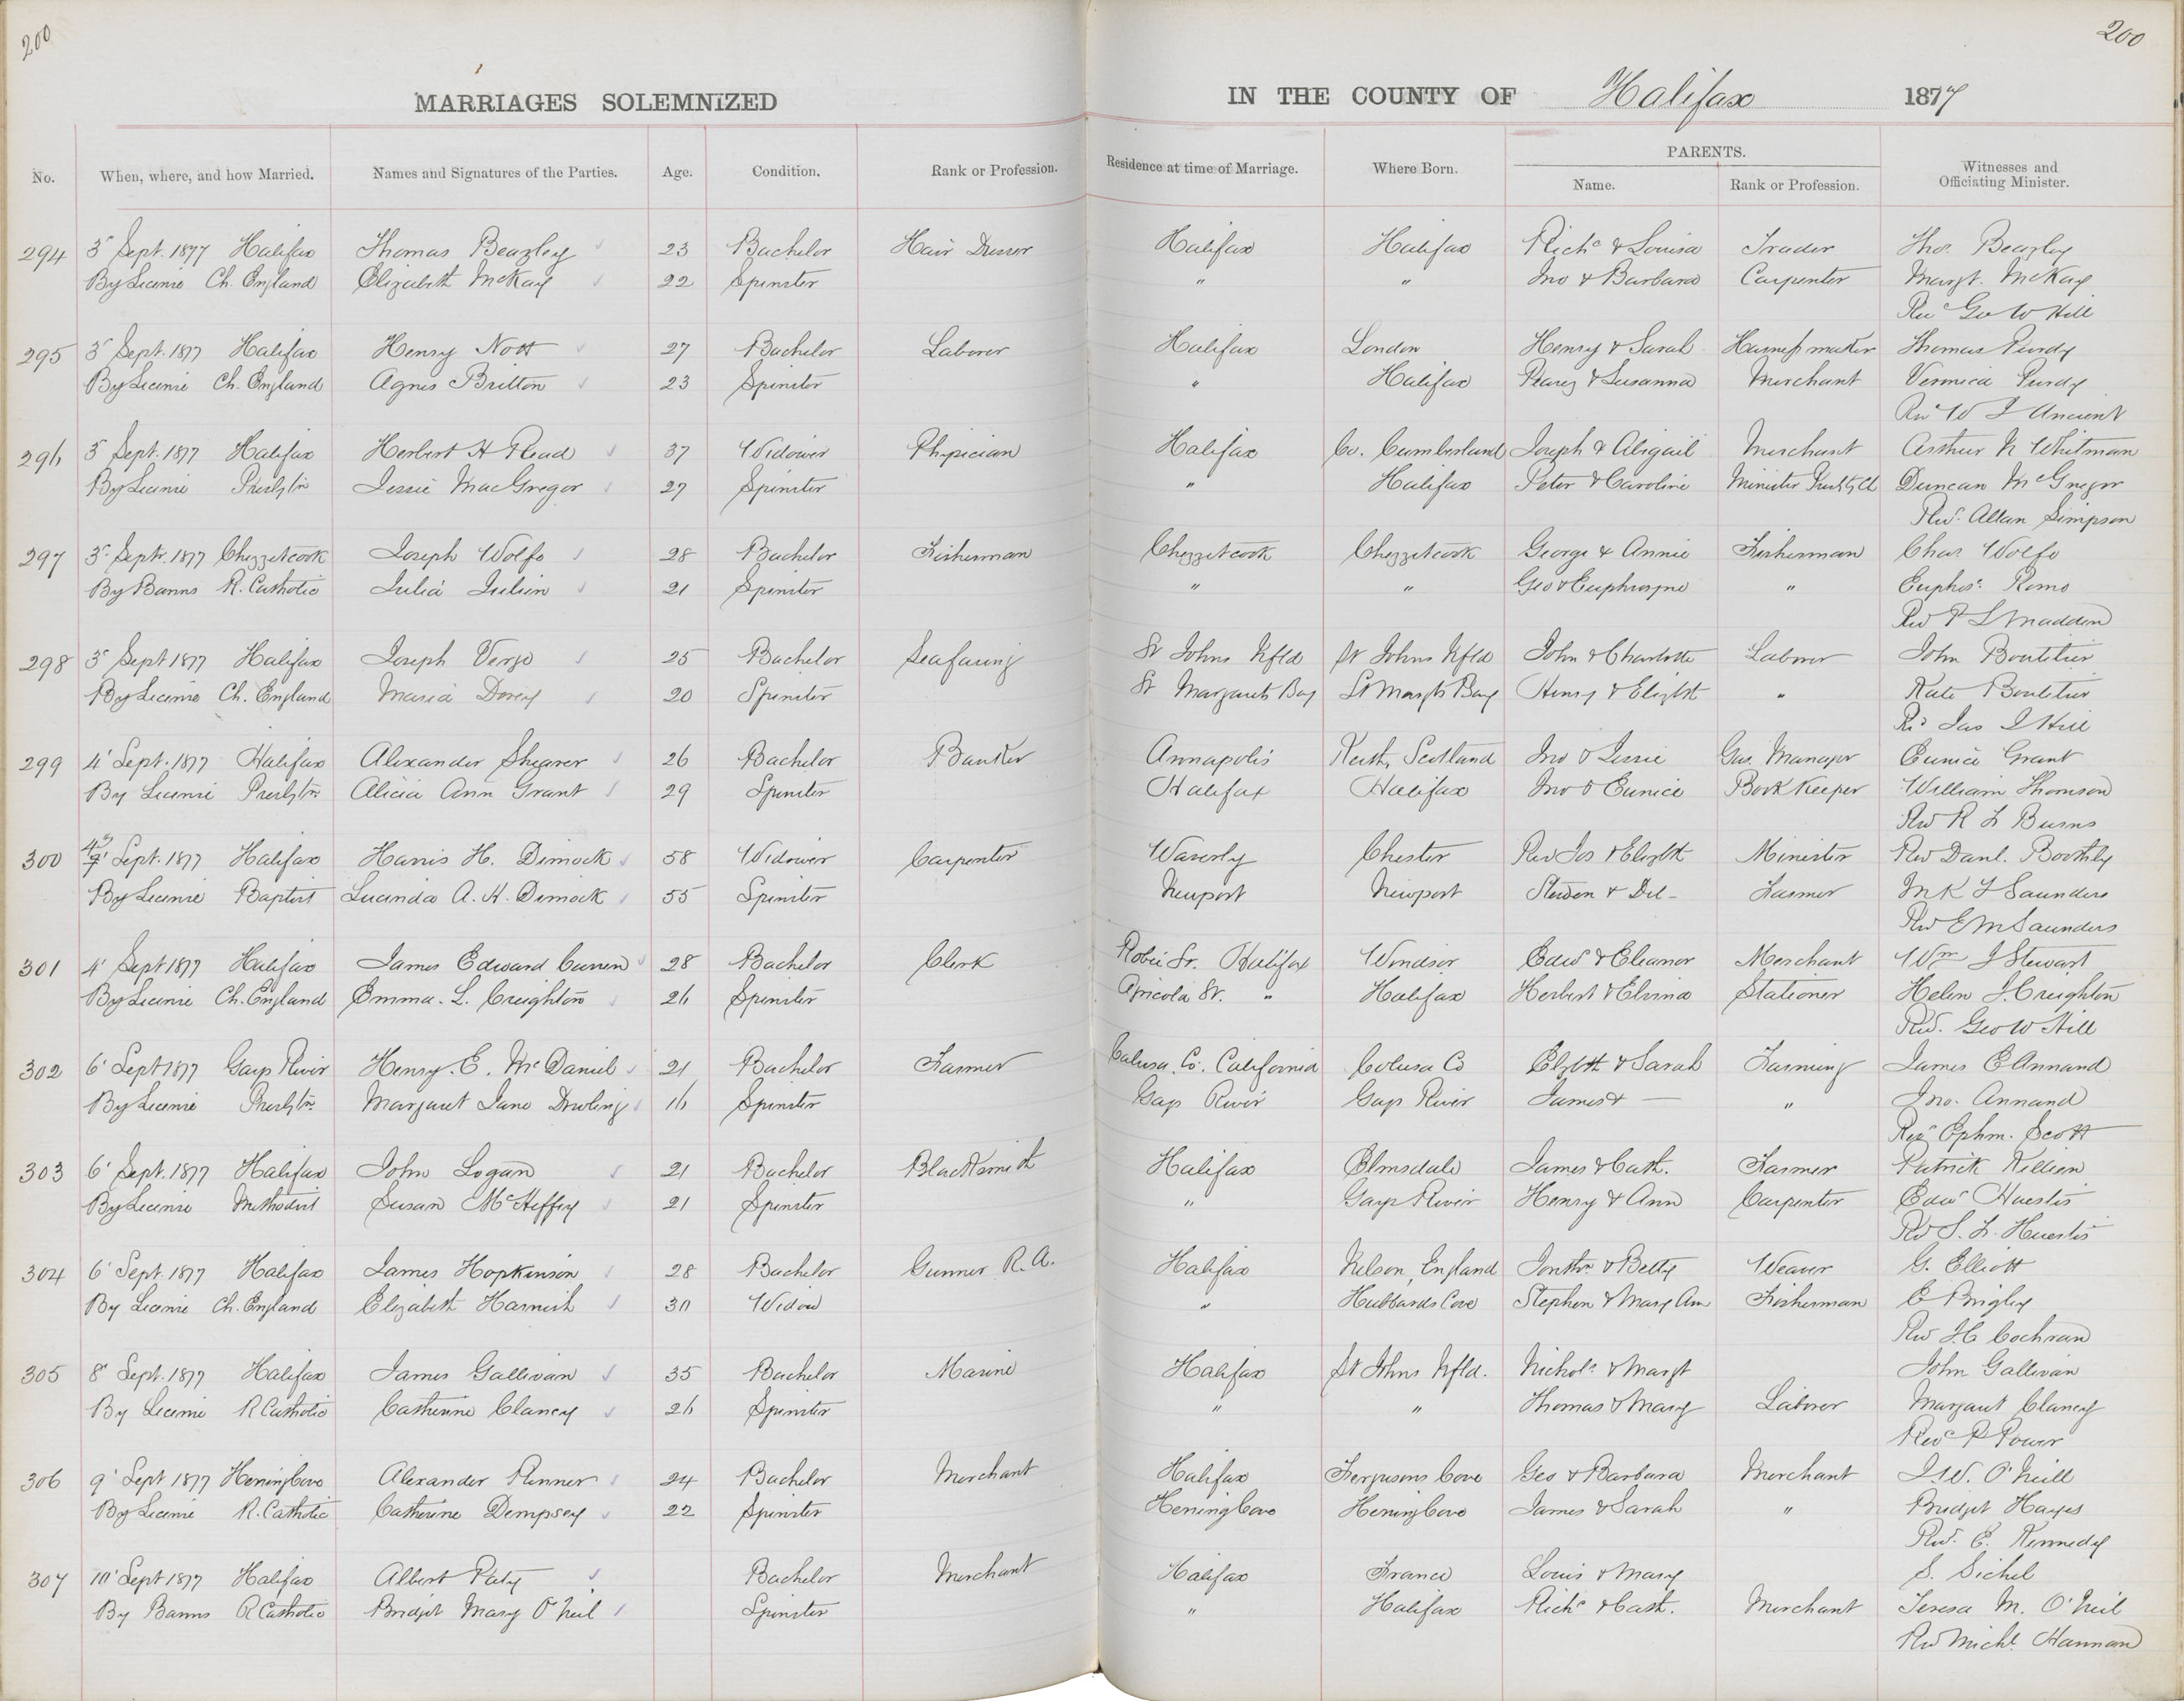 200
200
MARRIAGES SOLEMNIZED IN THE COUNTY OF Halifax 1877
No. When, where, and how Married. Names and Signatures of the Parties. Age. Condition. Rank or Profession. Residence at time of Marriage. Where Born. PARENTS. Name. Rank or Profession. Witnesses and Officiating Minister.
294 3' Sept. 1877 Halifax Thomas Beazley 23 Bachelor Hair Dresser Halifax Halifax Richd & Louisa Trader Thos. Beazley
By License Ch. England Elizabeth McKay 22 Spinster " " Jno & Barbara Carpenter Margt. McKay
Rev Geo W Hill
295 3' Sept. 1877 Halifax Henry Nott 27 Bachelor Laborer Halifax London Henry & Sarah Harness maker Thomas Purdy
By License Ch. England Agnes Britton 23 Spinster " Halifax & Susanna Merchant Veronica Purdy
Rev W J Ancient
296 3' Sept. 1877 Halifax Herbert H Read 37 Widower Physician Halifax Co. Cumberland Joseph & Abigail Merchant Arthur N Whitman
By License Presbytn Jessie MacGregor 27 Spinster " Halifax Peter & Caroline Minister Presbty Ch Duncan McGregor
Rev. Allan Simpson
297 3' Sept. 1877 Chezzetcook Joseph Wolfe 28 Bachelor Fisherman Chezzetcook Chezzetcook George & Annie Fisherman Chas Wolfe
By Banns R. Catholic Julia Julien 21 Spinster " " Geo & Euphrosyne " Euphos. Romo
Rev P L Madden
298 3' Sept 1877 Halifax Joseph Verge 25 Bachelor Seafaring St Johns Nfld St Johns Nfld John & Charlotte Laborer John Boutilier
By License Ch. England Maria Dorey 20 Spinster St Margarets Bay St Margts Bay Henry & Elizbt " Kate Boutilier
Rev Jas J Hill
299 4' Sept. 1877 Halifax Alexander Shearer 26 Bachelor Banker Annapolis Keith, Scotland Jno & Jessie Gas Manager Eunice Grant
By License Presbytn Alicia Ann Grant 29 Spinster Halifax Halifax Jno & Eunice Book Keeper William Thomson
Rev R F Burns
300 4' Sept. 1877 Halifax Harris H. Dimock 58 Widower Carpenter Waverly Chester Rev Jos & Elizbth Minister Rev Danl. Boothby
By License Baptist Lucinda A. H. Dimock 55 Spinster Newport Newport & Del- Farmer M K F Saunders
Rev E M Saunders
301 4' Sept 1877 Halifax James Edward Curren 28 Bachelor Clerk Robie St. Halifax Windsor Edwd & Eleanor Merchant Wm J Stewart
By License Ch. England Emma. L. Creighton 26 Spinster Agricola St. " Halifax Herbert & Elvina Stationer Helen J. Creighton
Rev. Geo W Hill
302 6' Sept 1877 Gays River Henry. E. McDaniel 21 Bachelor Farmer Calusa Co. California Colusa Co Elzbth & Sarah Farming James E Annand
By License Presbytn. Margaret Jane Dowling 16 Spinster Gays River Gays River James & — " Jno. Annand
Revd Ephm. Scott
303 6' Sept. 1877 Halifax John Logan 21 Bachelor Blacksmith Halifax Elmsdale James & Cath. Farmer Patrick Killian
By License Methodist Susan McHeffey 21 Spinster " Gays River Henry & Ann Carpenter Edwd Huestis
Rev S. F. Huestis
304 6' Sept. 1877 Halifax James Hopkinson 28 Bachelor Gunner R. A. Halifax Nelson, England Jonthn & Betty Weaver G. Elliott
By License Ch. England Elizabeth Harnish 30 Widow " Hubbards Cove Stephen & Mary Ann Fisherman E Brigley
Rev J C Cochran
305 8' Sept. 1877 Halifax James Gallivan 35 Bachelor Marine Halifax St Johns Nfld. Nichols & Margt John Gallivan
By License R Catholic Catherine Clancy 26 Spinster " " Thomas & Mary Laborer Margaret Clancy
Revd P Power
306 9' Sept 1877 Herring Cove Alexander Renner 24 Bachelor Merchant Halifax Fergusons Cove Geo & Barbara Merchant J W. O'Neill
By License R. Catholic Catherine Dempsey 22 Spinster Herring Cove Herring Cove James & Sarah " Bridget Hayes
Rev. E. Kennedy
307 10' Sept 1877 Halifax Albert Paty Bachelor Merchant Halifax France Louis & Mary S. Sichel
By Banns R Catholic Bridget Mary O'Neil Spinster " Halifax Richd & Cath. Merchant Teresa M. O'Neil
Rev Michl. Hannan